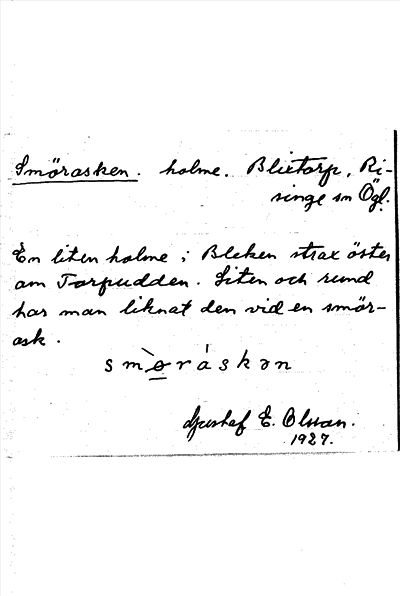 Smörasken. holme. Blixtorp, Ri-
singe sn Ögl.
En liten holme i Bleken strax öster
om Torpudden. Liten och rund
har man liknat den vid en smör-
ask.
smò̲ráskən
Gustaf E. Olsson.
1927.